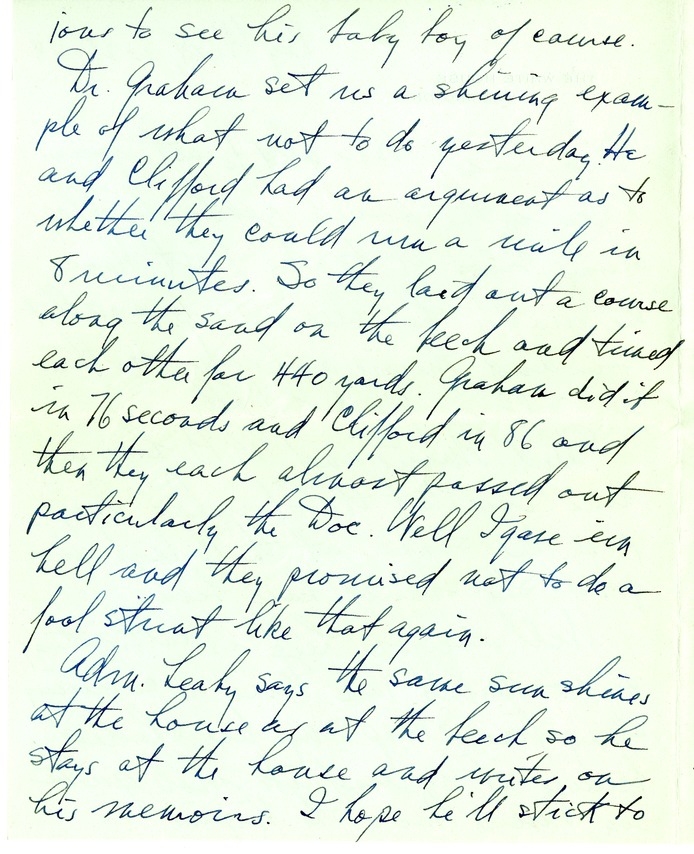 ious to see his baby boy of course.
Dr. Graham set us a shining exam-
ple of what not to do yesterday. He
and Clifford had an argument as to
whether they could run a mile in
8 minutes. So they laid out a course
along the sand on the beech and timed
each other for 440 yards. Graham did it
in 76 seconds and Clifford in 86 and
then they each almost passed out
particularly the Doc. Well I gave em
hell and they promised not to do a
fool stunt like that again.
Adm. Leahy says the same sun shines
at the house as at the beech so he
stays at the house and writes on
his memoirs. I hope he'll stick to